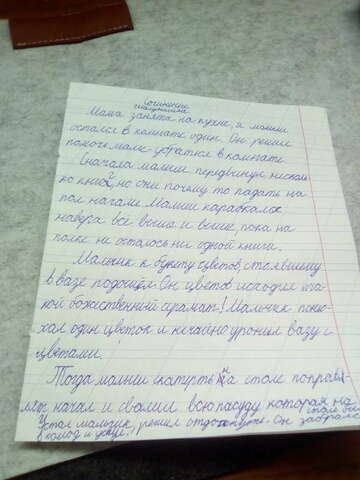 Сочинение
Мама занята на кухне, а малыш
остался в комнате один. Он решил
помочь маме убраться в комнате.
Сначала малыш передвинул несколь
ко книг, но они почему то падать на
пол начали. Малыш карабкался
наверх всё выше и выше, пока на
полке не осталось ни одной книги.
Мальчик к букету цветов, стоявшему
в вазе подошёл. От цветов исходил та
кой божественный аромат! Мальчик поню-
хал один цветок и нечайно уронил вазу с
цветами.
Тогда малыш скатерть на столе поправ
лять начал и свалил всю посуду которая на
столе бы
Устал мальчик, решил отдохнуть. Он забрался
в комод и уснул.